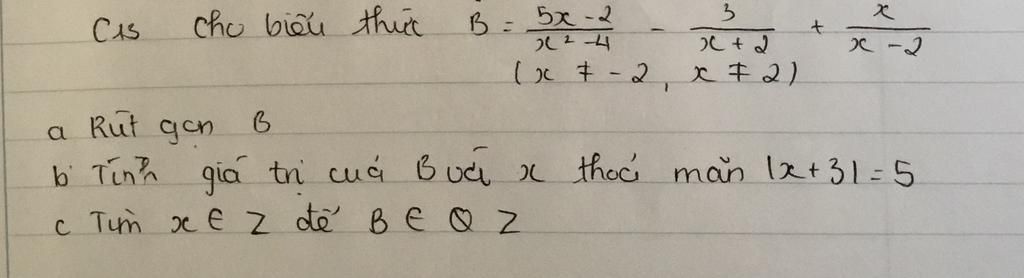 C15 Cho biểu thức B = \frac{5x - 2}{x² - 4} - \frac{3}{x + 2} + \frac{x}{x - 2}
(x ≠ -2, x ≠ 2)
a Rút gọn B
b Tính giá trị của B với x thoả mãn |x + 3| = 5
c Tìm x ∈ Z để B ∈ Z